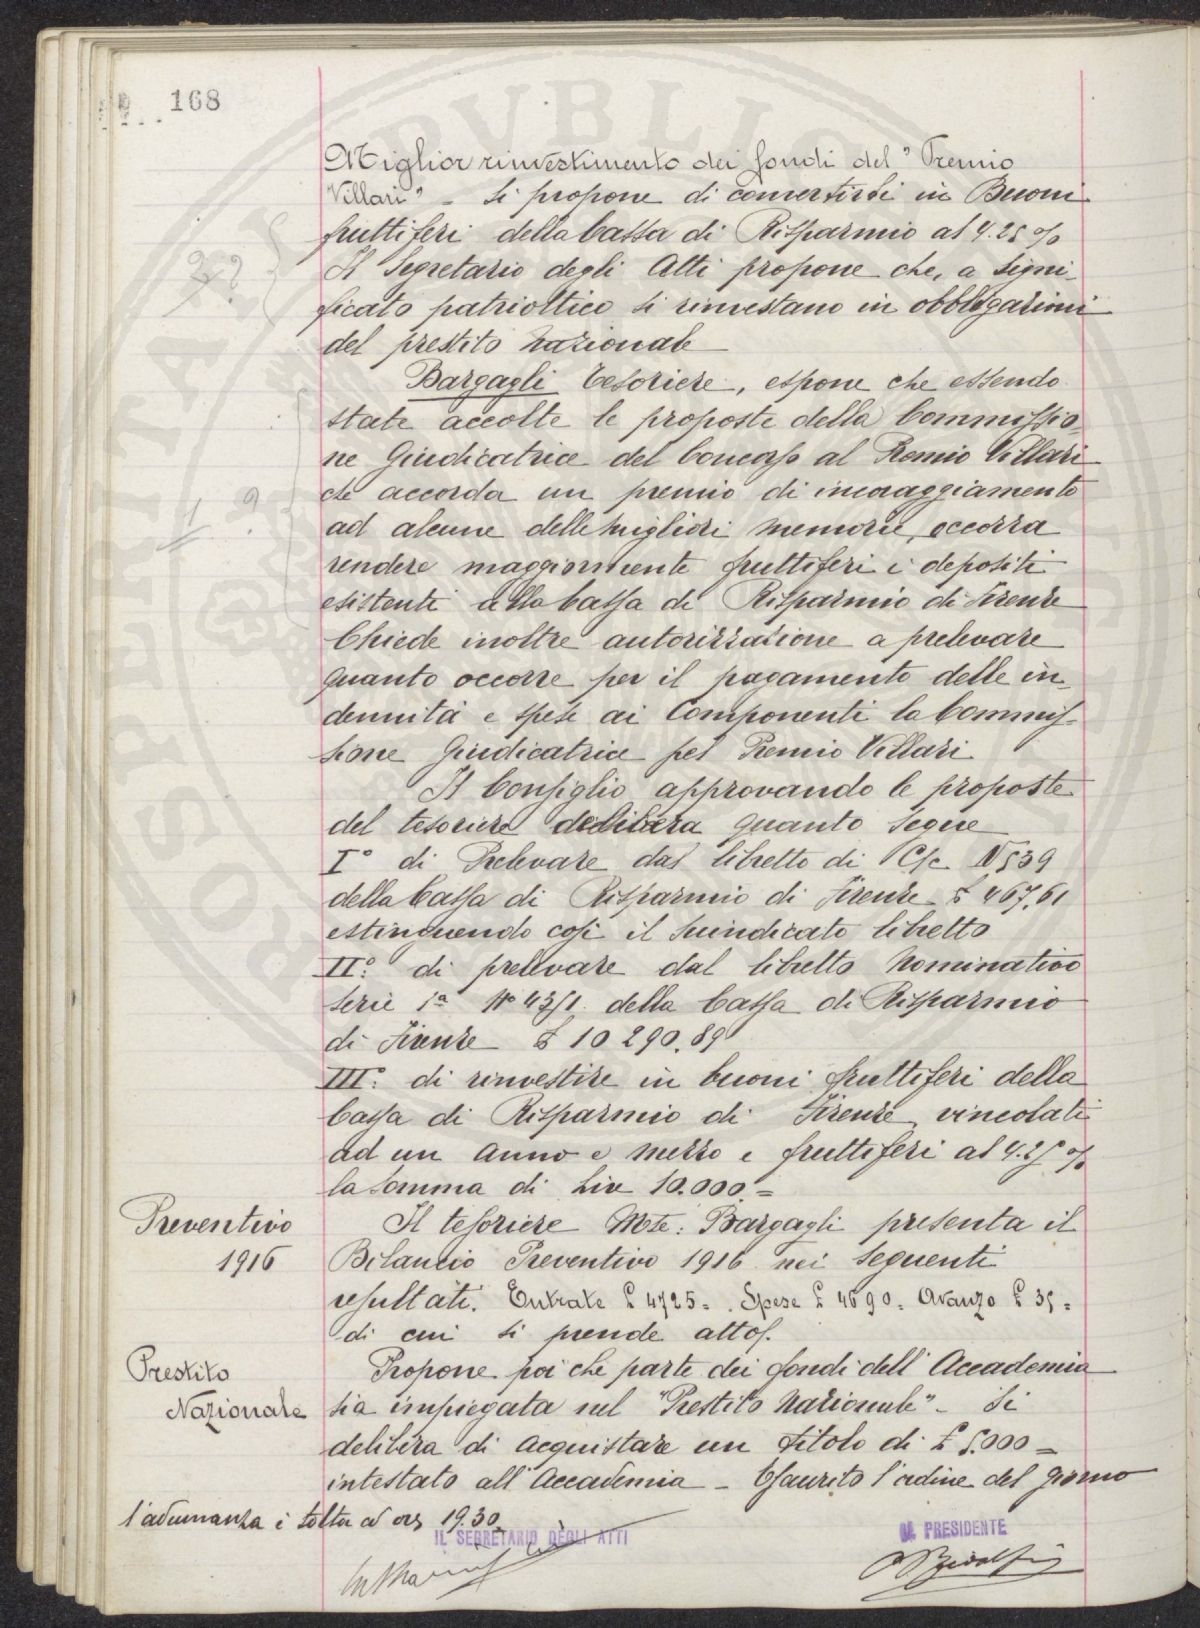 168
Miglior rinvestimento dei fondi del "Premio
Villari" - Si propone di convertirli in Buoni
fruttiferi della Cassa di Risparmio al 4.25 %
Il Segretario degli Atti propone che, a signi-
ficato patriottico si rinvestano in obbligazioni
del prestito Nazionale
Bargagli tesoriere, espone che essendo
state accolte le proposte della Commissio-
ne Giudicatrice del Concorso al Premio Villari
che accorda un premio di incoraggiamento
ad alcune delle migliori memorie, occorra
rendere maggiormente fruttiferi i depositi
esistenti alla Cassa di Risparmio di Firenze
Chiede inoltre autorizzazione a prelevare
quanto occorre per il pagamento delle in-
dennità e spese ai Componenti la Commis-
sione Giudicatrice pel Premio Villari
Il Consiglio approvando le proposte
del tesoriere delibera quanto segue
I° di Prelevare dal libretto di C/c N 539
della Cassa di Risparmio di Firenze £ 467,61
estinguendo così il suindicato libretto
II°. di prelevare dal libretto Nominativo
Serie 1a No 4351 della Cassa di Risparmio
di Firenze £ 10290.89
III°. di rinvestire in buoni fruttiferi della
Cassa di Risparmio di Firenze, vincolati
ad un anno e mezzo e fruttiferi al 4.25 %
la somma di Lire 10.000 =
Preventivo
1916
Il tesoriere Mse. Bargagli presenta il
Bilancio Preventivo 1916 nei seguenti
resultati. Entrate £ 4725 =. Spese £ 4690. Avanzo £ 35 =
di cui si prende atto.
Prestito
Nazionale
Propone poi che parte dei fondi dell'Accademia
sia impiegata nel "Prestito Nazionale" - Si
delibera di acquistare un titolo di £ 5.000 =
intestato all'Accademia - Esaurito l'ordine del giorno
l'adunanza è tolta a ore 19.30
IL SEGRETARIO DEGLI ATTI
IL PRESIDENTE